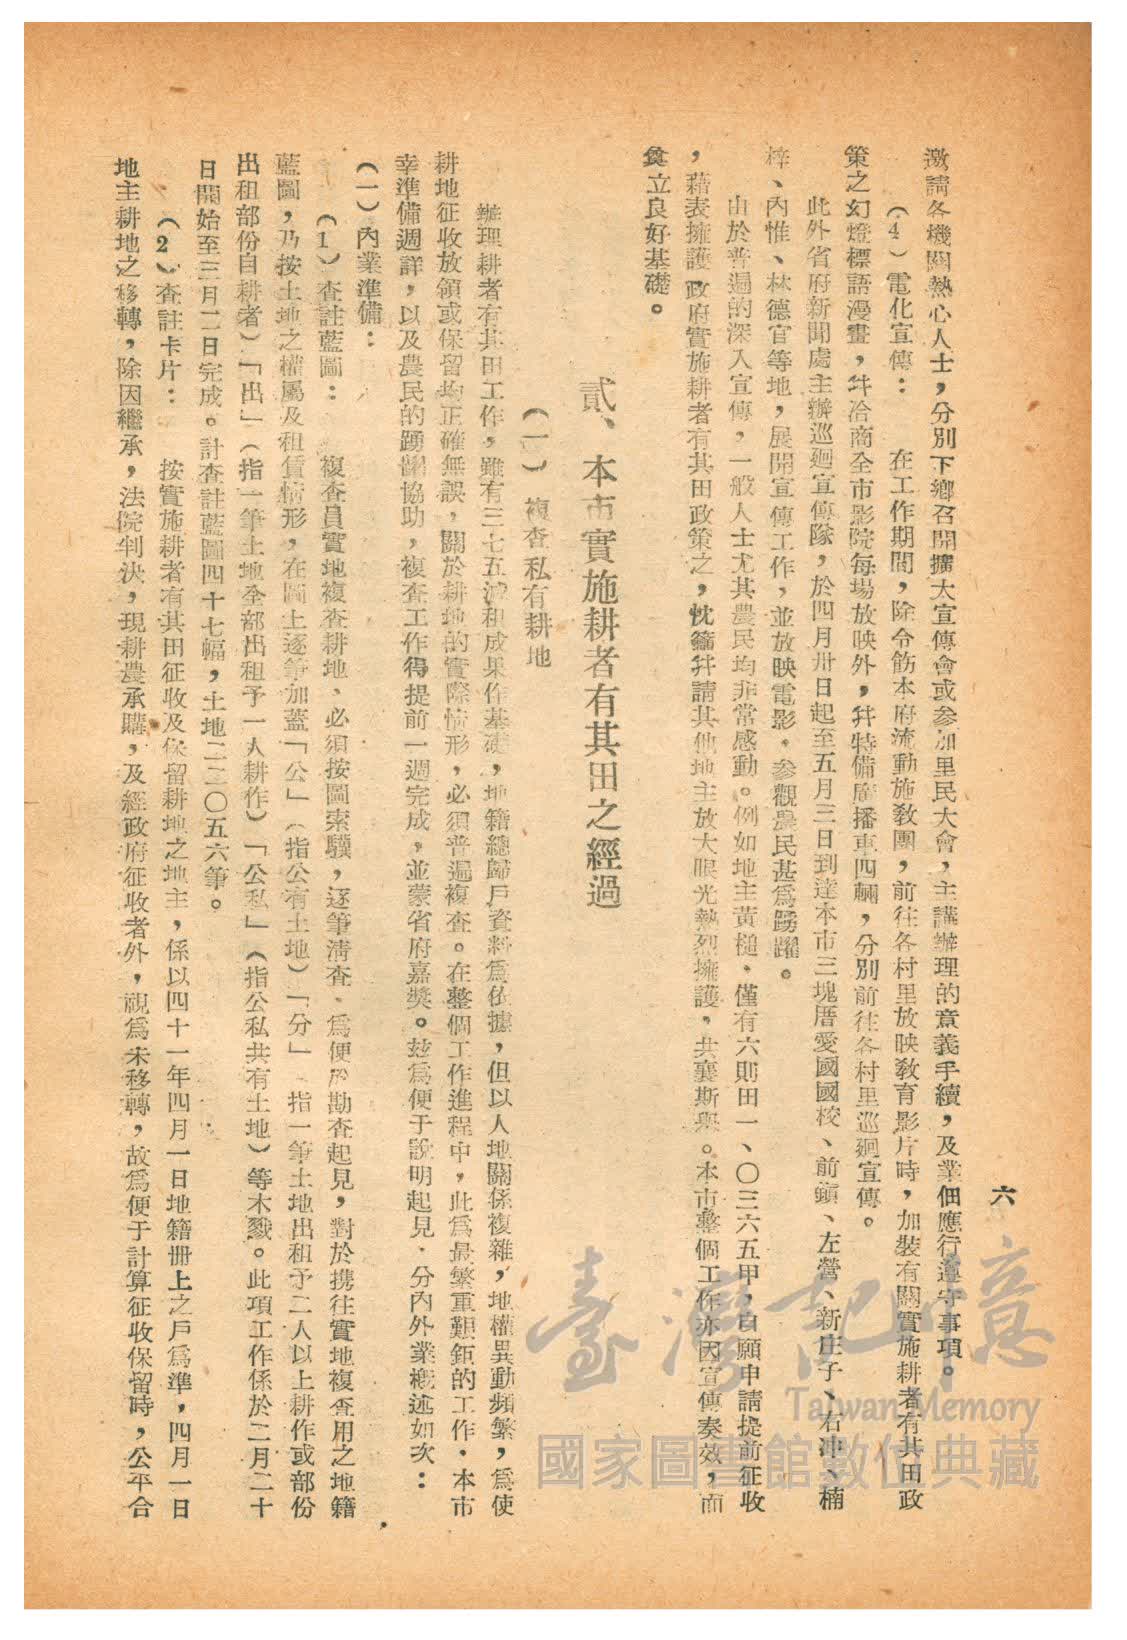 六
邀請各機關熱心人士，分別下鄉召開擴大宣傳會或参加里民大會，主講辦理的意義手續，及業佃應行遵守事項。
（4）電化宣傳：　在工作期間，除令飭本府流動施教團，前往各村里放映教育影片時，加裝有關實施耕者有其田政
策之幻燈標語漫畫，幷洽商全市影院每場放映外，幷特備廣播車四輛，分別前往各村里巡廻宣傳。
此外省府新聞處主辦巡廻宣傳隊，於四月卅日起至五月三日到達本市三塊厝愛國國校、前鎮、左營、新庄子、右冲、楠
梓、內惟、林德官等地，展開宣傳工作，並放映電影，參觀農民甚爲踴躍。
由於普遍的深入宣傳，一般人士尤其農民均非常感動。例如地主黃槌，僅有六則田一、〇三六五甲，自願申請提前征收
，藉表擁護政府實施耕者有其田政策之忱，籲幷請其他地主放大眼光熱烈擁護，共襄斯舉。本市整個工作亦因宣傳奏效，而
奠立良好基礎。
貳、本市實施耕者有其田之經過
（一）複查私有耕地
辦理耕者有其田工作，雖有三七五減租成果作基礎，地籍總歸戶資料爲依據，但以人地關係複雜，地權異動頻繁，爲使
耕地征收放領或保留均正確無誤，關於耕地的實際情形，必須普遍複查。在整個工作進程中，此爲最繁重艱鉅的工作。本市
幸準備週詳，以及農民的踴躍協助，複查工作得提前一週完成，並蒙省府嘉獎。玆爲便于說明起見，分內外業槪述如次：
（一）內業準備：
（1）查註藍圖：　複查員實地複查耕地、必須按圖索驥，逐筆淸査，爲便於勘查起見，對於携往實地複查用之地籍
藍圖，乃按土地之權屬及租賃情形，在圖上逐筆加蓋「公」（指公有土地）「分」　指一筆土地出租予二人以上耕作或部份
出租部份自耕者）「出」（指一筆土地全部出租予一人耕作）「公私」（指公私共有土地）等木戳。此項工作係於二月二十
日開始至三月二日完成。計查註藍圖四十七幅，土地二二〇五六筆。
（2）查註卡片：　按實施耕者有其田征收及保留耕地之地主，係以四十一年四月一日地籍冊上之戶爲準，四月一日
地主耕地之移轉，除因繼承，法院判決，現耕農承購，及經政府征收者外，視爲未移轉，故爲便于計算征收保留時，公平合
臺灣記憶
Taiwan Memory
國家圖書館數位典藏